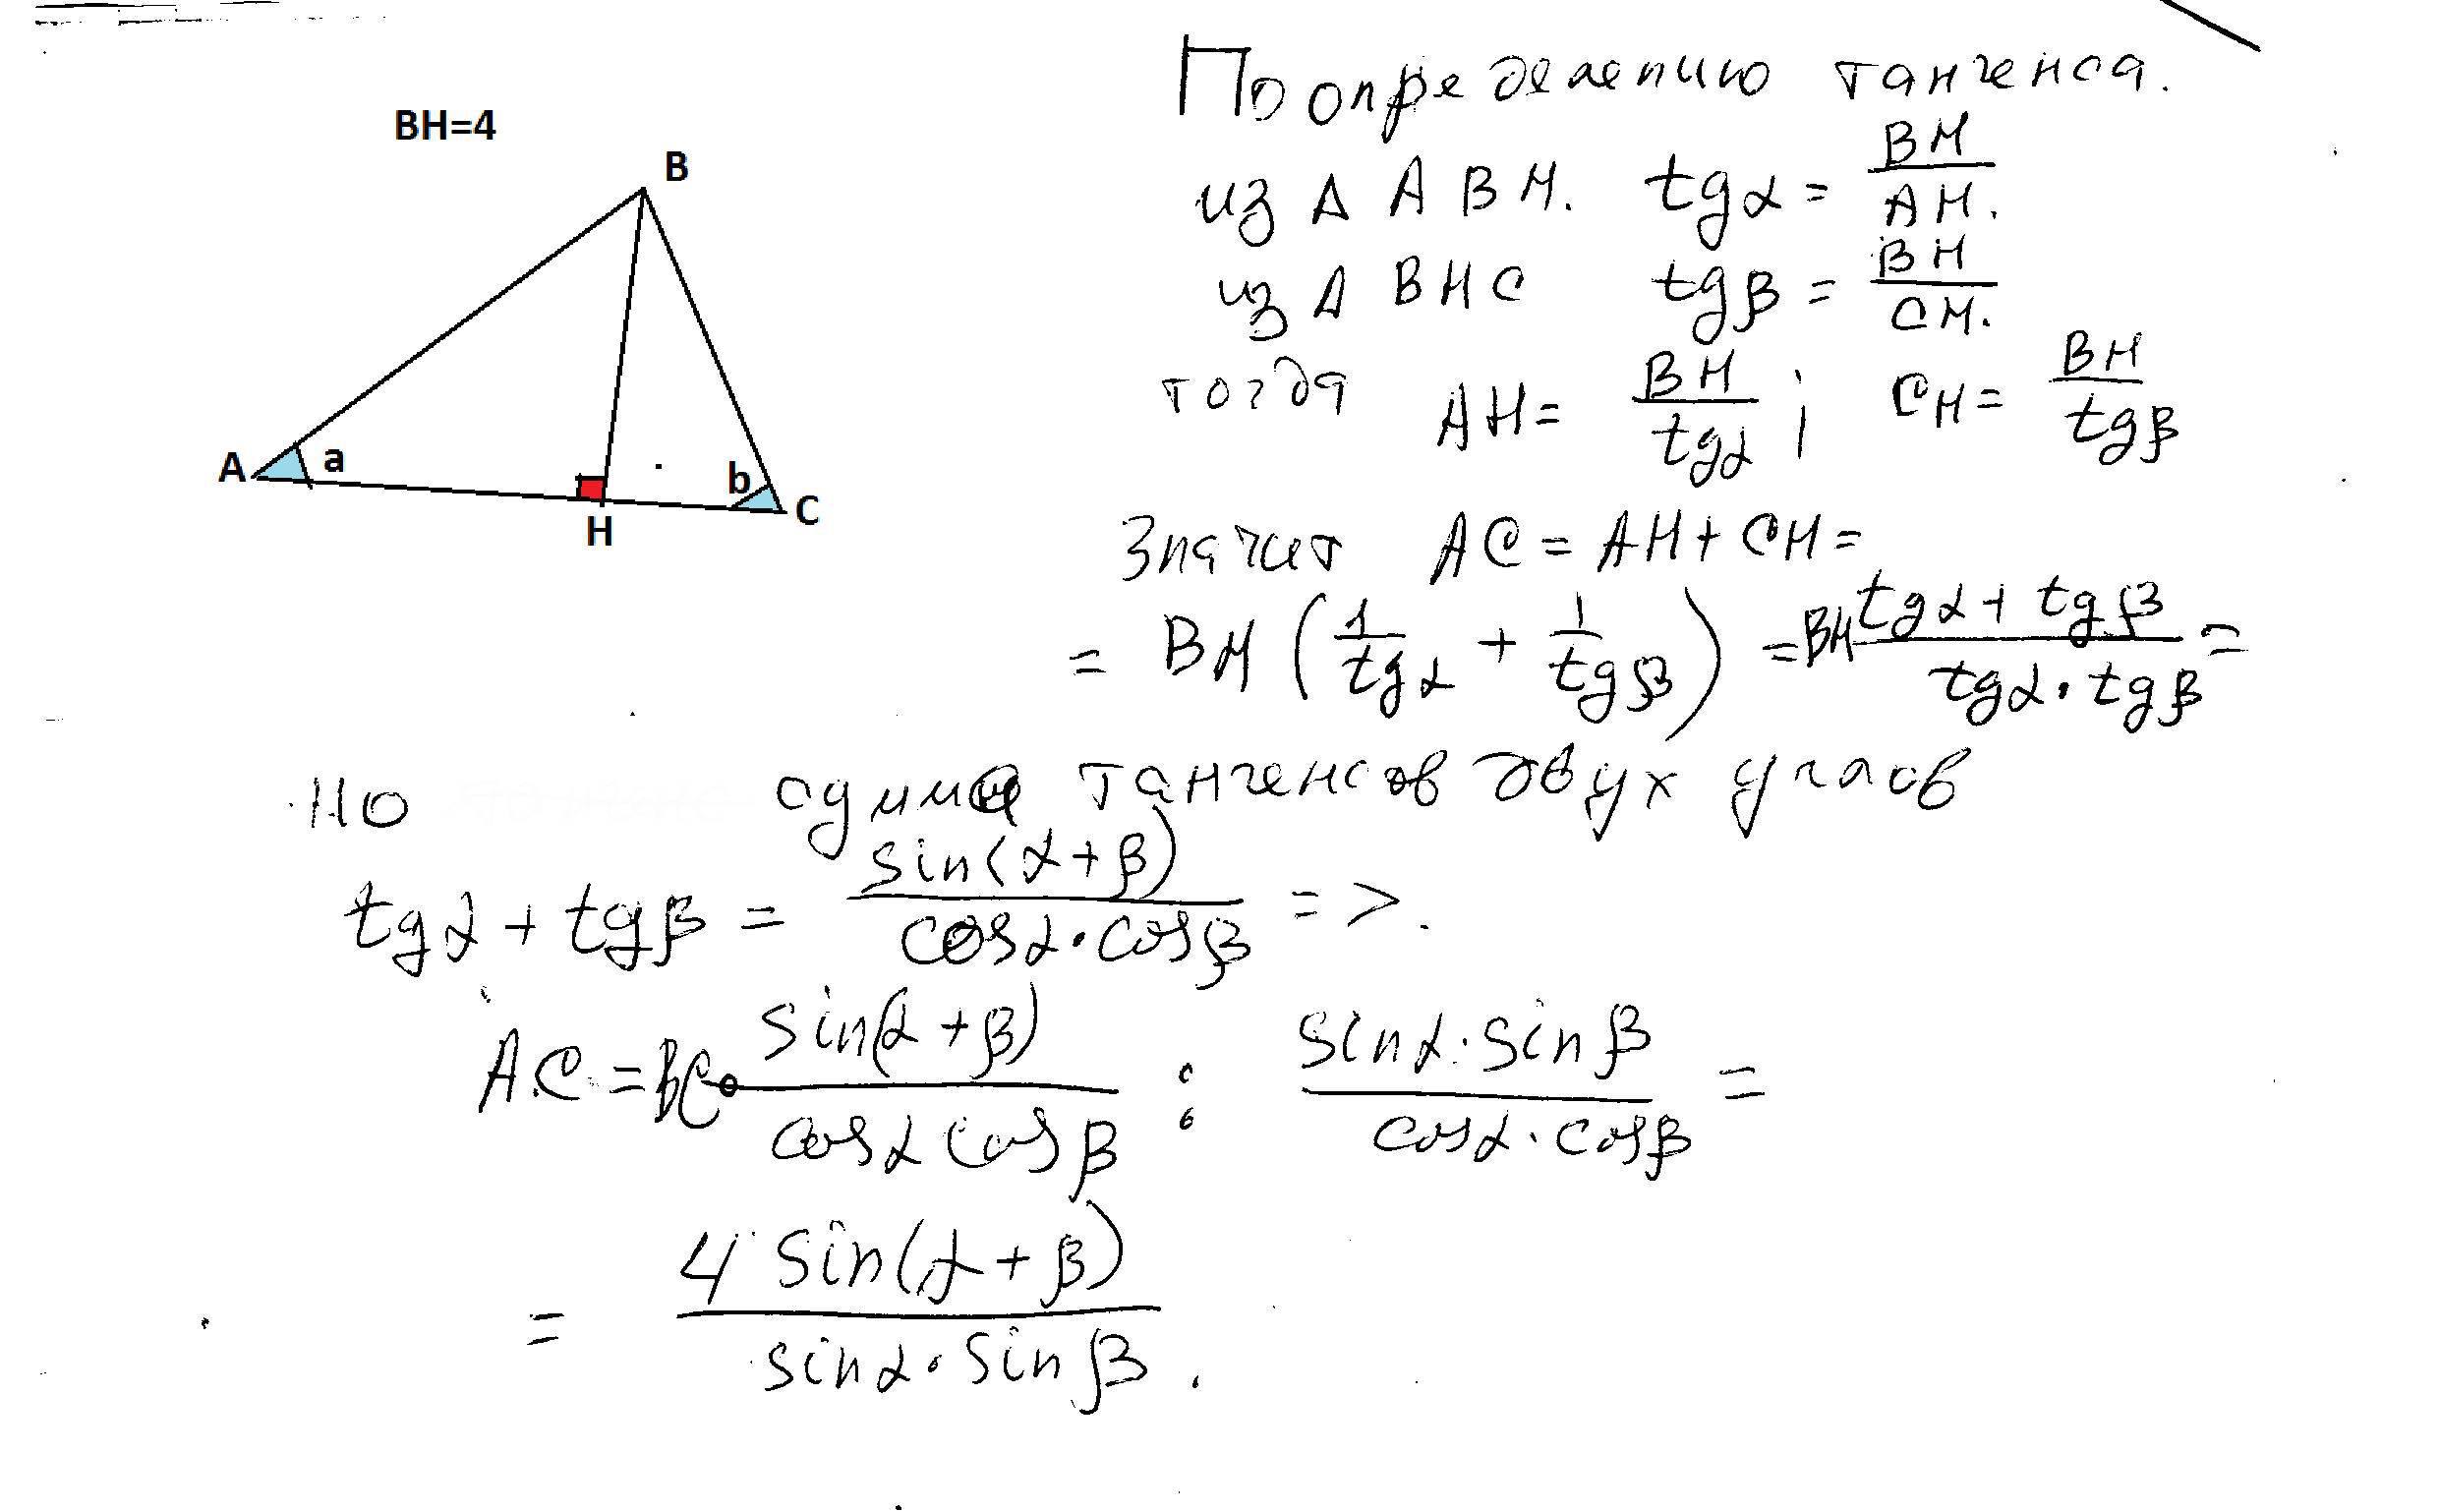 BH=4
B
A
a
b
C
H
По определению тангенса.
из Δ ABH. tgα = BH/AH.
из Δ BHC tgβ = BH/CH.
тогда AH = BH/tgα ; CH = BH/tgβ
Значит AC = AH + CH =
= BH (1/tgα + 1/tgβ) = BH (tgα + tgβ)/(tgα · tgβ) =
Но сумма тангенсов двух углов
tgα + tgβ = sin(α+β)/(cosα · cosβ) =>.
AC = BC · sin(α+β)/(cosα cosβ) : (sinα · sinβ)/(cosα · cosβ) =
= 4 sin(α+β)/(sinα · sinβ).